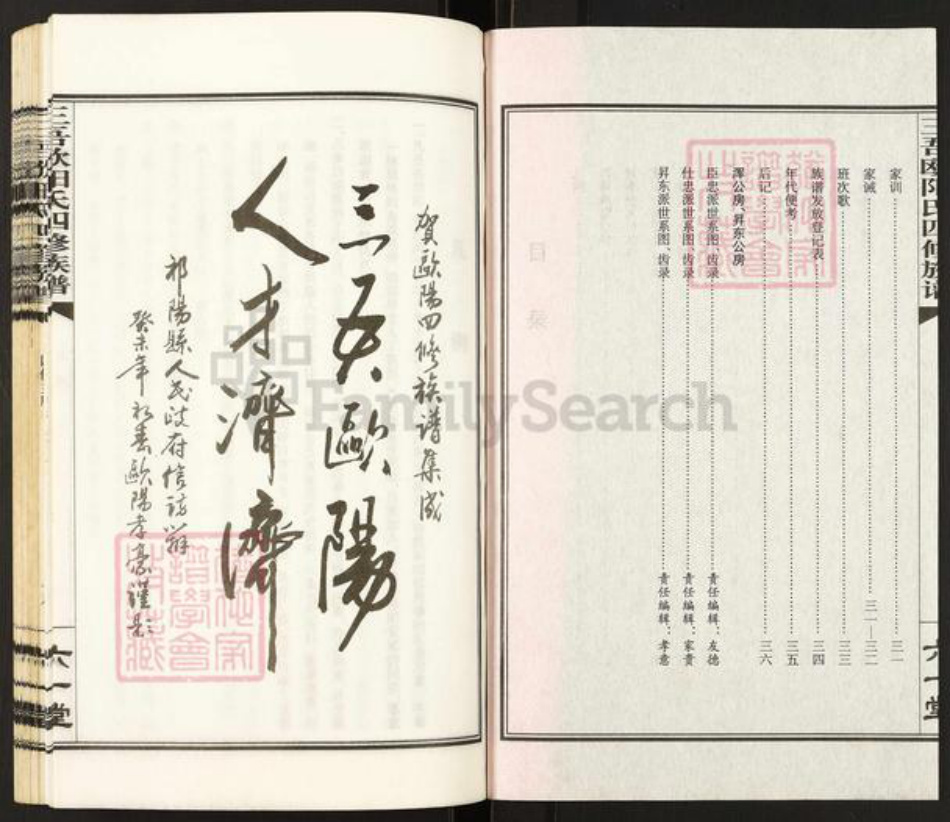 三吾欧阳氏四修族谱
家训 三一
家诫 三一—三二
班次歌 三三
族谱发放登记表 三四
年代便考 三五
后记 三六
泽公房、昇东公房
臣忠派世系图、齿录 责任编辑：友德
仕忠派世系图、齿录 责任编辑：家贵
昇东派世系图、齿录 责任编辑：孝意
六一堂
賀歐陽四修族譜集成
三吾歐陽
人才濟濟
祁陽縣人民政府信訪辦
癸未年初春歐陽孝豪謹題
三吾欧阳氏四修族谱
六一堂
FamilySearch